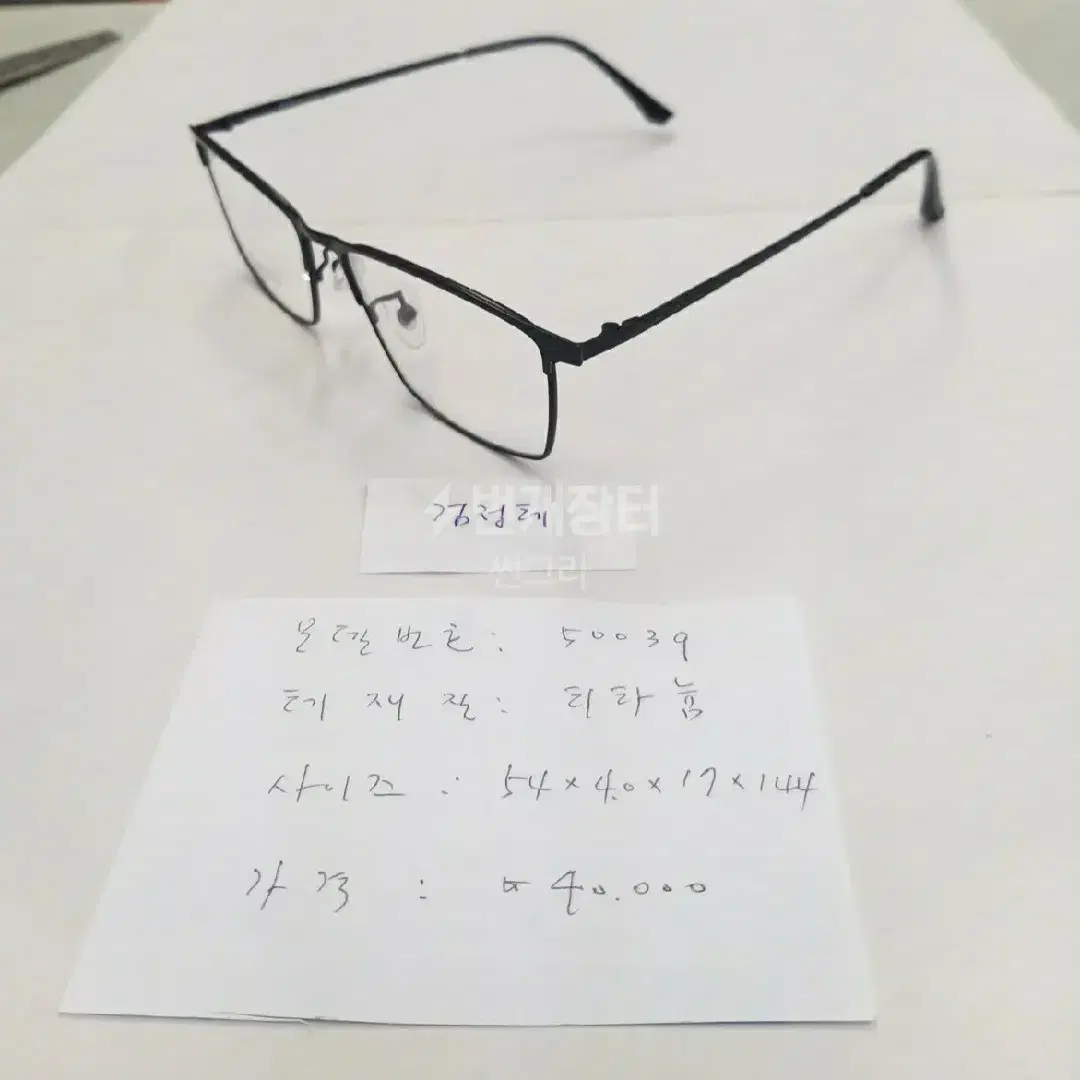 번개장터
검정테
썬그라
모델번호: 50039
테 재질: 티타늄
사이즈 : 54×40×17×144
가격 : ₩40.000